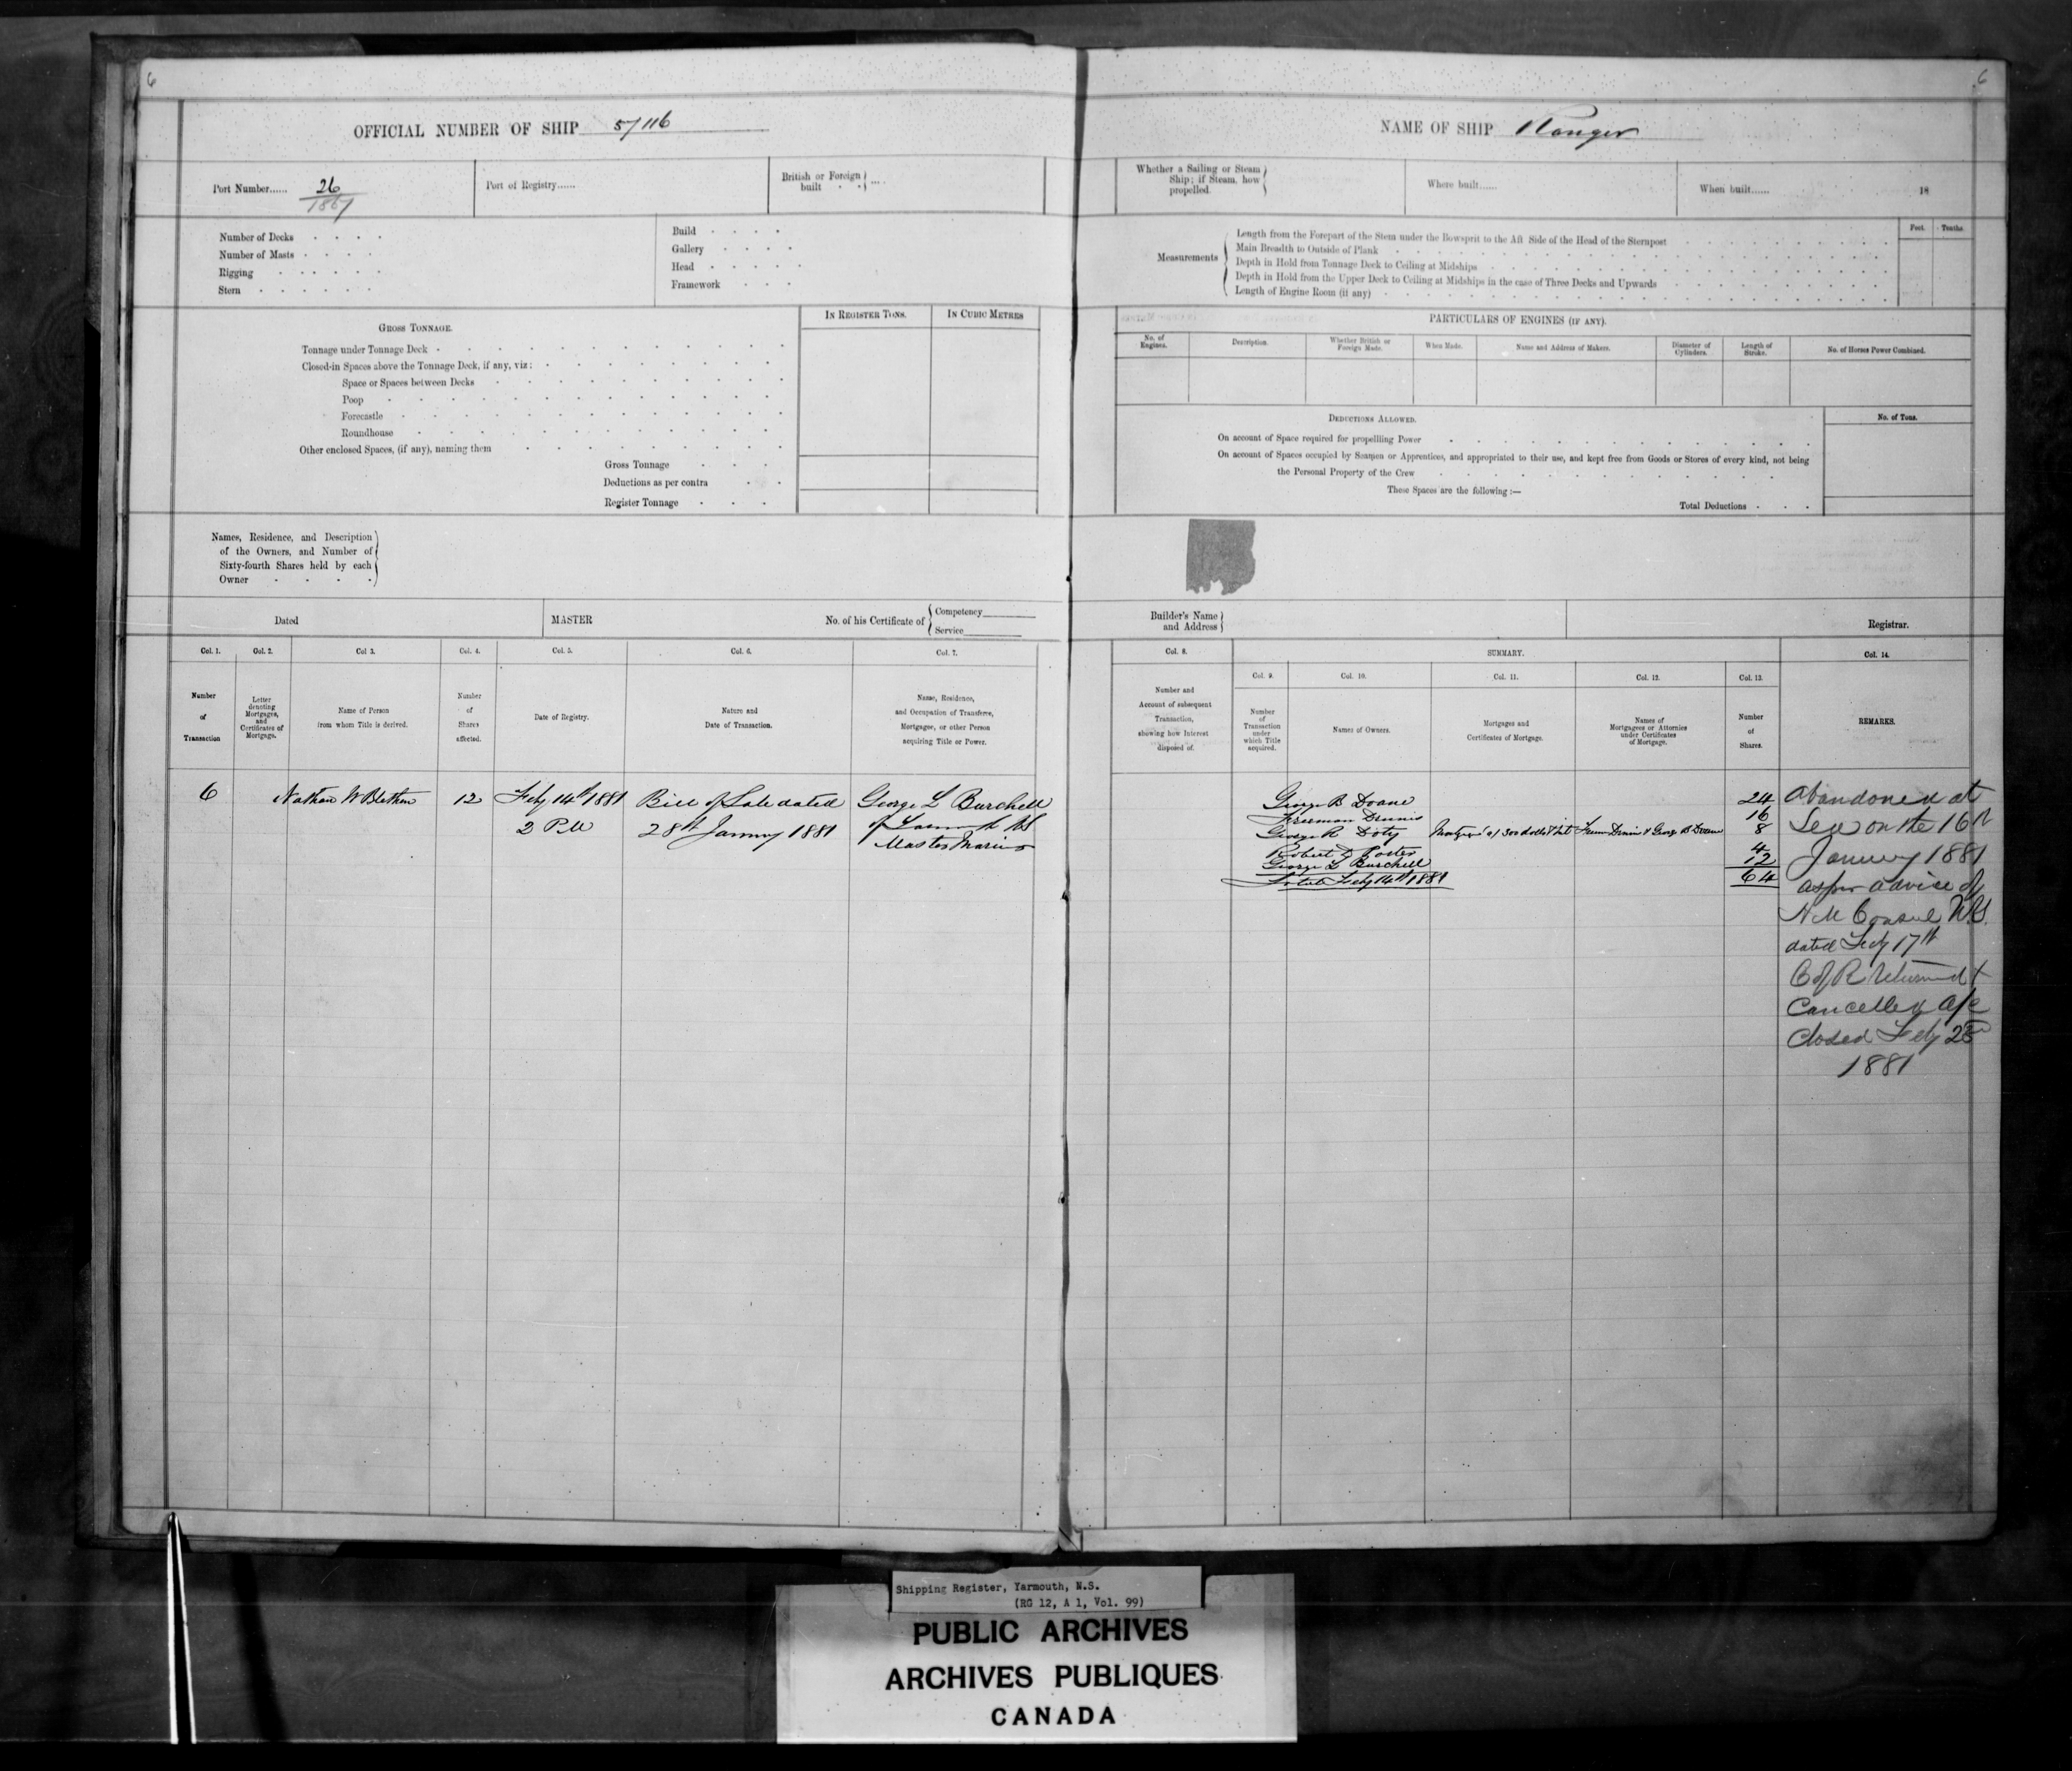 6
6
OFFICIAL NUMBER OF SHIP 57116
NAME OF SHIP Ranger
Port Number...... 26/1867
Port of Registry......
British or Foreign built
Whether a Sailing or Steam Ship; if Steam, how propelled.
Where built......
When built...... 18
Number of Decks
Number of Masts
Rigging
Stern
Build
Gallery
Head
Framework
Measurements
Length from the Forepart of the Stem under the Bowsprit to the Aft Side of the Head of the Sternpost
Main Breadth to Outside of Plank
Depth in Hold from Tonnage Deck to Ceiling at Midships
Depth in Hold from the Upper Deck to Ceiling at Midships in the case of Three Decks and Upwards
Length of Engine Room (if any)
Feet. Tenths.
GROSS TONNAGE.
IN REGISTER TONS.
IN CUBIC METRES
Tonnage under Tonnage Deck
Closed-in Spaces above the Tonnage Deck, if any, viz:
Space or Spaces between Decks
Poop
Forecastle
Roundhouse
Other enclosed Spaces, (if any), naming them
Gross Tonnage
Deductions as per contra
Register Tonnage
PARTICULARS OF ENGINES (IF ANY).
No. of Engines.
Description.
Whether British or Foreign Made.
When Made.
Name and Address of Makers.
Diameter of Cylinders.
Length of Stroke.
No. of Horses Power Combined.
DEDUCTIONS ALLOWED.
No. of Tons.
On account of Space required for propellling Power
On account of Spaces occupied by Seamen or Apprentices, and appropriated to their use, and kept free from Goods or Stores of every kind, not being
the Personal Property of the Crew
These Spaces are the following:—
Total Deductions
Names, Residence, and Description
of the Owners, and Number of
Sixty-fourth Shares held by each
Owner
Dated
MASTER
No. of his Certificate of
Competency
Service
Builder's Name and Address
Registrar.
Col. 1.
Col. 2.
Col 3.
Col. 4.
Col. 5.
Col. 6.
Col. 7.
Col. 8.
SUMMARY.
Col. 14.
Col. 9.
Col. 10.
Col. 11.
Col. 12.
Col. 13.
Number of Transaction
Letter denoting Mortgages, and Certificates of Mortgage.
Name of Person from whom Title is derived.
Number of Shares affected.
Date of Registry.
Nature and Date of Transaction.
Name, Residence, and Occupation of Transferee, Mortgagee, or other Person acquiring Title or Power.
Number and Account of subsequent Transaction, shewing how Interest disposed of.
Number of Transaction under which Title acquired.
Names of Owners.
Mortgages and Certificates of Mortgage.
Names of Mortgagees or Attornies under Certificates of Mortgage.
Number of Shares.
REMARKS.
6 Nathan W Blethen 12 Feby 14th 1881 Bill of Sale dated George L Burchell
2 PM 28th January 1881 of Yarmouth NS
Master Mariner
George B Doane 24
Freeman Dennis 16
George R Doty 8
Robert 4
George L Burchell 12
Total Feby 14th 1881 64
Abandoned at
Sea on the 16th
January 1881
as per advice of
H M Consul N.Y.
dated Feby 17th
C of R returned &
Cancelled a/c
Closed Feby 25
1881
Shipping Register, Yarmouth, N.S.
(RG 12, A 1, Vol. 99)
PUBLIC ARCHIVES
ARCHIVES PUBLIQUES
CANADA